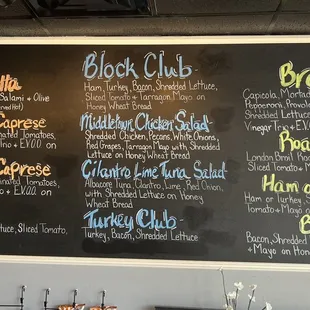 Salami + Olive
Caprese
Tomatoes,
+ E.V.O.O. on
Caprese
Tomatoes,
E.V.O.O. on
Sliced Tomato,
Block Club
Ham, Turkey, Bacon, Shredded Lettuce,
Sliced Tomato + Tarragon Mayo on
Honey Wheat Bread
Middletown Chicken Salad
Shredded Chicken, Pecans, White Onions,
Red Grapes, Tarragon Mayo with Shredded
Lettuce on Honey Wheat Bread
Cilantro Lime Tuna Salad
Albacore Tuna, Cilantro, Lime, Red Onion,
with Shredded Lettuce on Honey
Wheat Bread
Turkey Club
Turkey, Bacon, Shredded Lettuce
Br
Capicola,
Pepperoni,
Vinegar
Roa
London Broil
Sliced Tomato
Ham
Ham or Turkey
Tomato + Mayo
B
Bacon, Shredded
+ Mayo on Honey